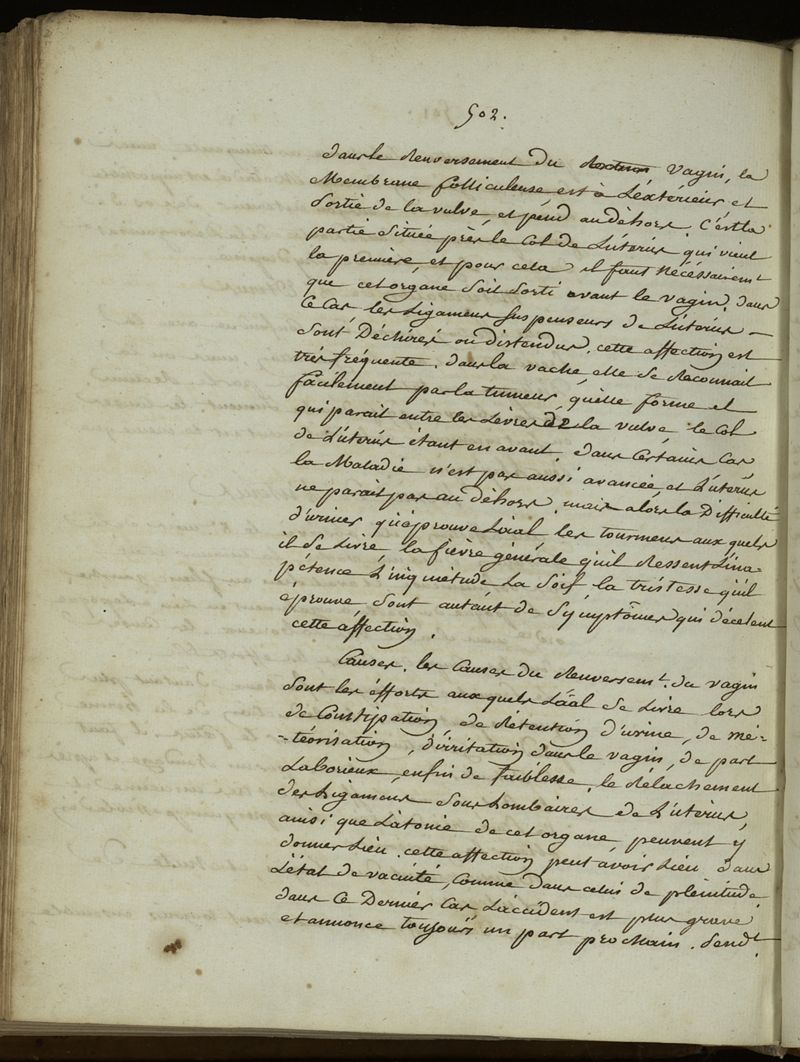 502.
dans le Renversement du Rectum vagin, la
Membrane folliculeuse est à L'éxtérieur, et
Sortie de la vulve, et pend au déhors. C'est la
partie Située près le Col de L'utérus qui vient
la première, et pour cela il faut Nécéssairemt
que cet orgâne Soit Sorti avant le vagin, dans
Ce Cas, les Ligamens Suspenseurs de L'utérus —
Sont Déchirés ou distendus, cette affection est
très fréquente. dans la vache elle Se Reconnait
facilement par la tumeur, qu'elle forme et
qui parait entre les Lèvres de la vulve le Col
de L'utérus étant en avant. dans Certains Cas
la Maladie n'est pas aussi avancée, et L'utérus
ne parait pas au déhors, mais alors la Difficulté
d'uriner qu'éprouve L'aal les tourmens aux quels
il Se Livre la fièvre générale qu'il Ressent L'ina-
pétence L'inquiétude La Soif la tristesse qu'il
éprouve Sont autant de Symptômes qui décèlent
cette affection.
Causes. les Causes du Renversemt. du vagin
Sont les éfforts aux quels L'aal Se Livre lors
de Constipation, de Rétention d'urine, de mé-
-téorisation, d'irritation dans le vagin, de part
Laborieux, enfin de faiblesse, le Rélachement
des Ligamens Sous Lombaires de L'utérus,
ainsi que L'atonie de cet organe, peuvent y
donner Lieu. cette affection peut avoir Lieu dans
L'état de vacuité, Comme dans celui de plénitude.
dans Ce Dernier Cas L'accident est plus grave
et annonce toujours un part prochain. Sendt.